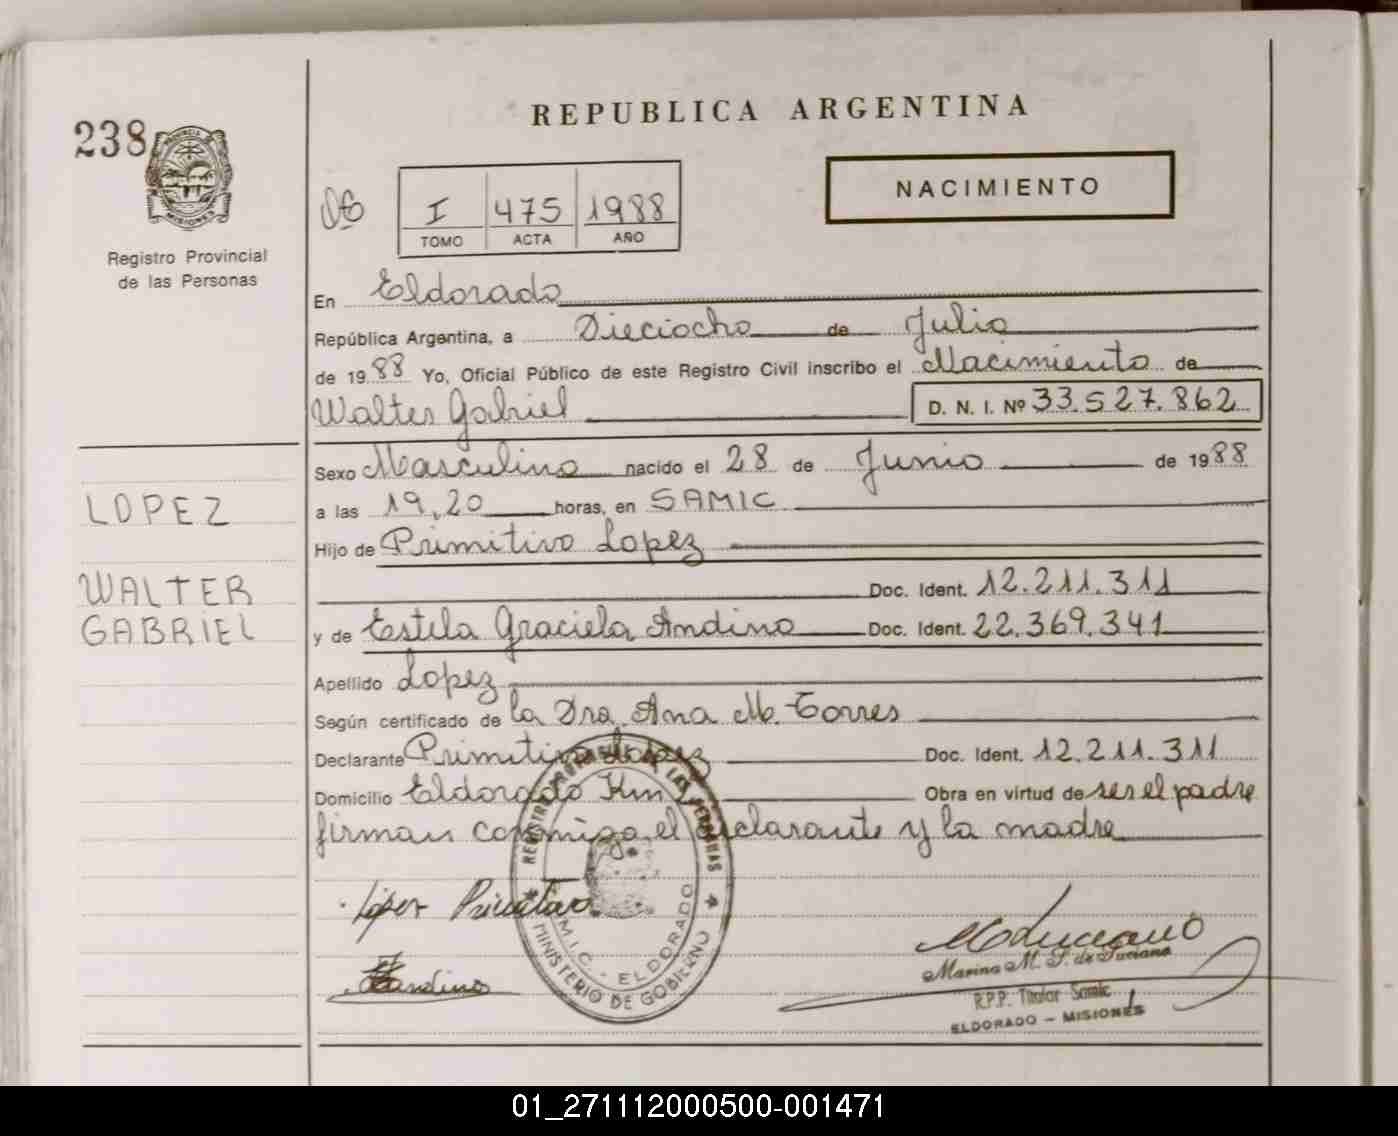 REPUBLICA ARGENTINA
238
PROVINCIA DE
MISIONES
Registro Provincial
de las Personas
NACIMIENTO
I 475 1988
TOMO ACTA AÑO
En Eldorado
República Argentina, a Dieciocho de Julio
de 1988 Yo, Oficial Público de este Registro Civil inscribo el Nacimiento de
Walter Gabriel D. N. I. Nº 33.527.862
Sexo Masculino nacido el 28 de Junio de 1988
a las 19,20 horas, en SAMIC
Hijo de Primitivo Lopez
Doc. Ident. 12.211.311
y de Estela Graciela Andino Doc. Ident. 22.369.341
Apellido Lopez
Según certificado de la Dra. Ana M. Torres
Declarante Primitivo Lopez Doc. Ident. 12.211.311
Domicilio Eldorado Km Obra en virtud de ser el padre
firman conmigo el declarante y la madre
LOPEZ
WALTER
GABRIEL
López Primitivo
Andino
REGISTRO PROVINCIAL DE LAS PERSONAS
MINISTERIO DE GOBIERNO
M.I.C. - ELDORADO
Marina M. S. de Luciano
R.P.P. Titular Samic
ELDORADO - MISIONES
01_271112000500-001471